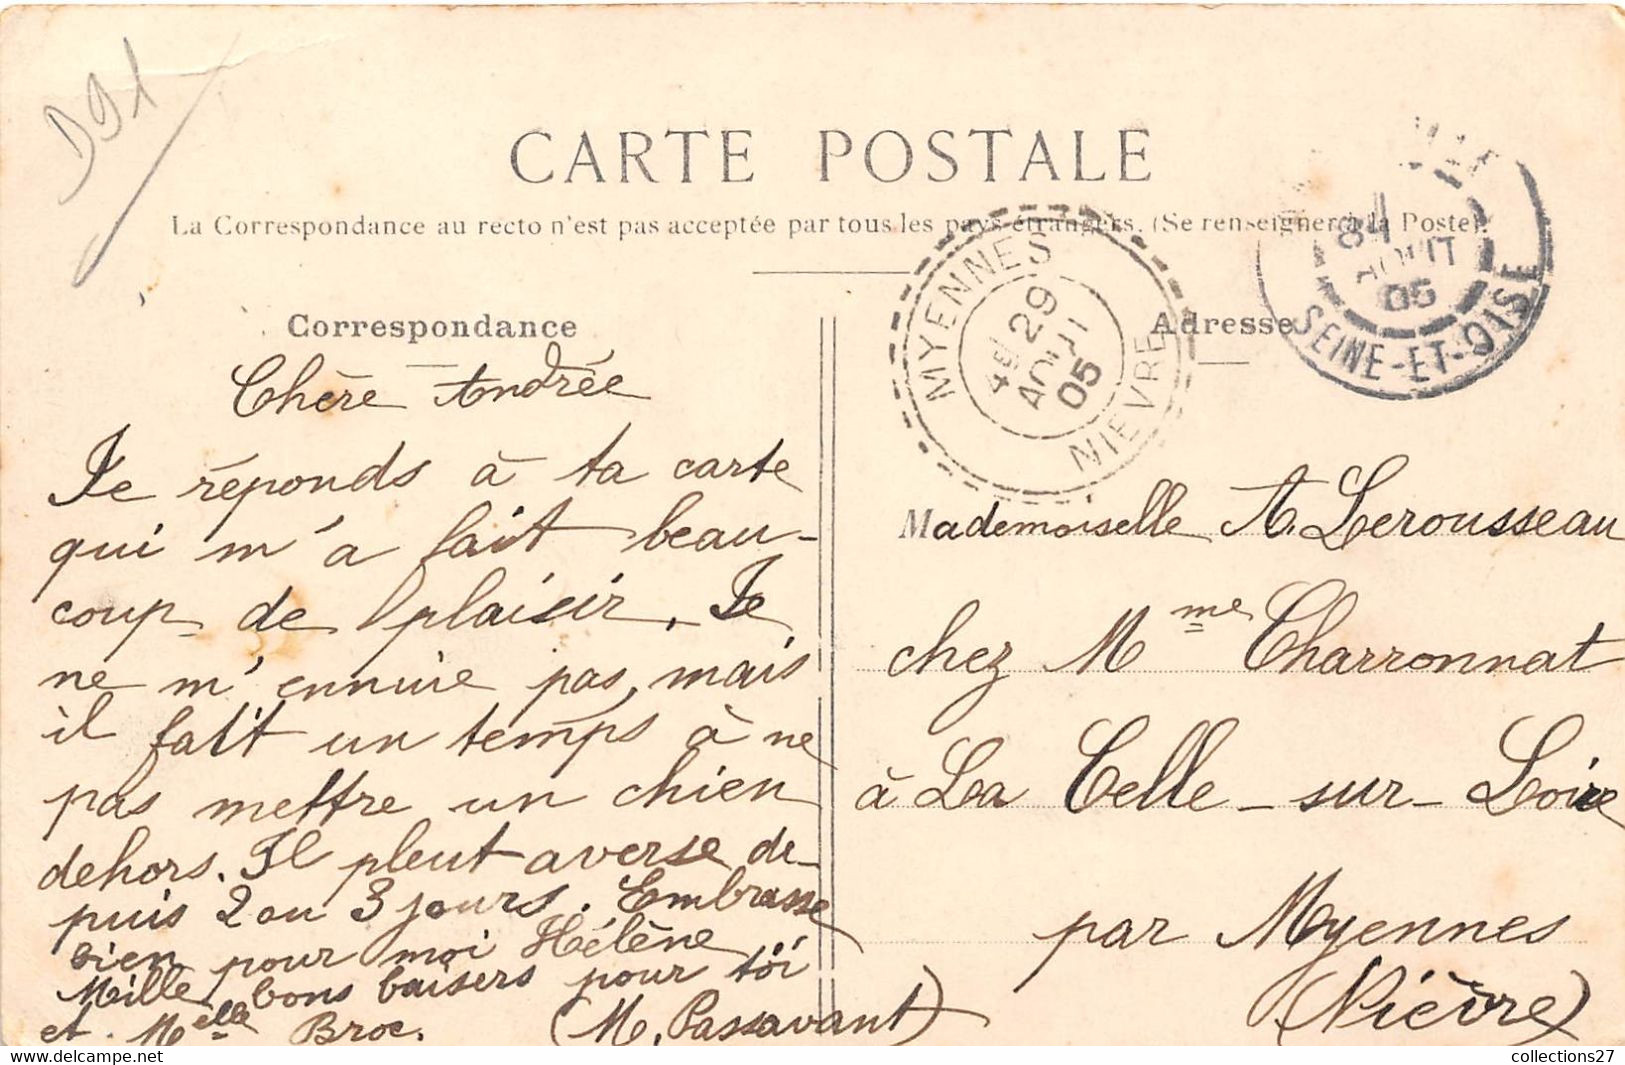 D91
CARTE POSTALE
La Correspondance au recto n'est pas acceptée par tous les pays étrangers. (Se renseigner à la Poste).
Correspondance
Chère Andrée
Je réponds à ta carte
qui m'a fait beau-
coup de plaisir. Je
ne m'ennuie pas, mais
il fait un temps à ne
pas mettre un chien
dehors. Il pleut averse de-
puis 2 ou 3 jours. Embrasse
bien pour moi Hélène
Mille bons baisers pour toi
et Melle Broc. (M. Passavant)
MYENNES
29
AOUT
05
NIEVRE
AOUT
05
SEINE-ET-OISE
Adresse
Mademoiselle A. Lerousseau
chez Mme Charronnat
à La Celle-sur-Loire
par Myennes
(Nièvre)
collections27